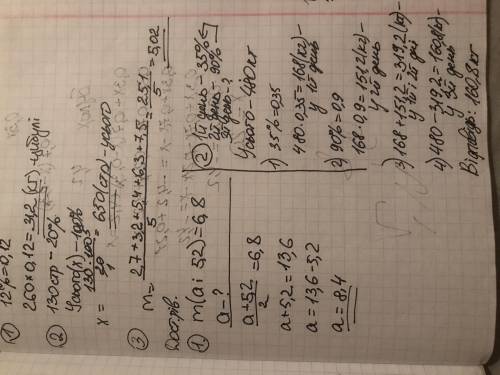 ① 12%=0,12
260×0,12=31,2 (кг) - цибулі
② 130 стр - 20%
Усього (х) - 100%
x = 130·100% / 20 = 650 (стр) - усього
③ m = 27+3,2+5,4+6,3+7,5 / 5 = 251 / 5 = 5,02
① m(a i 5,2)=6,8
a - ?
a+5,2 / 2 = 6,8
a+5,2=13,6
a=13,6-5,2
a=8,4
② 1й день - 35%
2й день - 90%
3й день - ?
Усього - 480 кг
1) 35%=0,35
480·0,35=168(кг) -
у 1й день
2) 90%=0,9
168·0,9=151,2(кг) -
у 2й день
3) 168+151,2=319,2(кг) -
у 1й і 2й дні
4) 480-319,2=160,8(кг) -
у 3й день
Відповідь: 160,8 кг